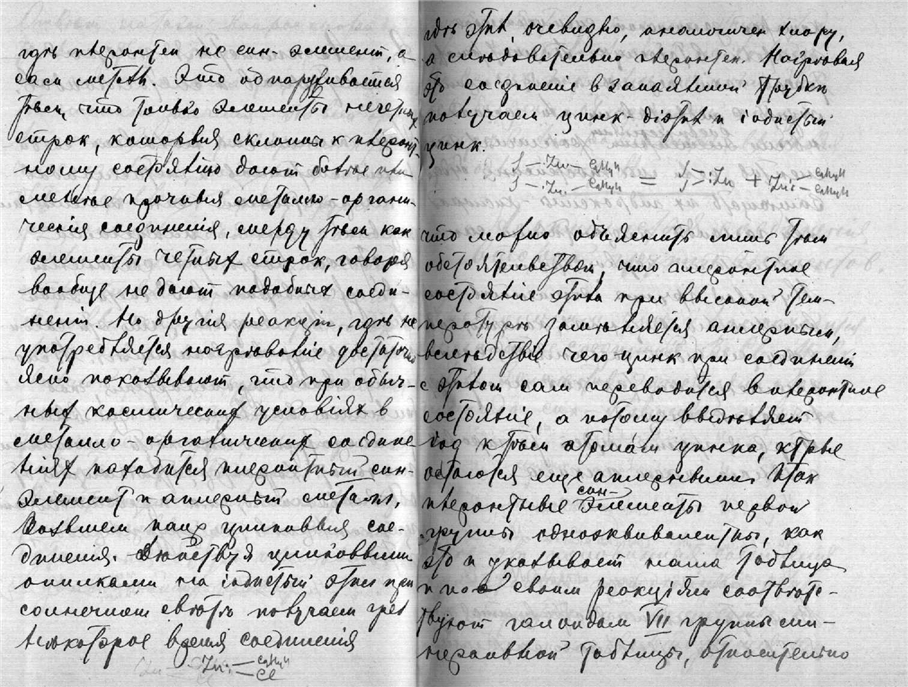 гдѣ плеронтен не син-элемент, а
сам метил. Это обнаруживается
тѣм, что только элементы нечетных
строк, которыя склонны к плеронт-
ному состоянію дают болѣе или
менѣе прочныя металло-органи-
ческія соединенія, между тѣм как
элементы четных строк, говоря
вообще не дают подобных соеди-
неній. Но другія реакціи, гдѣ не
употребляется нагрѣваніе достаточно
ясно показывают, что при обыч-
ных космических условіях в
металло-органических соедине-
ніях находится плеронтный син-
элемент и аплерный металл.
Возьмем напр. цинковыя сое-
диненія. Дѣйствуя цинковыми
опилками на іодистый этил при
солнечном свѣтѣ получаем чрез
нѣкоторое время соединенія
Zn: — C₂H₅
— Cl
гдѣ этил, очевидно, аналогичен хлору,
а слѣдовательно плеронтен. Нагрѣвая
это соединеніе в запаянной трубкѣ
получаем цинк-діэтил и іодистый
цинк.
J — :Zn: — C₂H₅
J — :Zn: — C₂H₅ = J >:Zn + Zn: — C₂H₅
— C₂H₅
что можно объяснить лишь тѣм
обстоятельством, что плеронтное
состояніе этила при высокой тем-
пературѣ замѣняется аплерным,
вслѣдствіе чего цинк при соединеніи
с этилом сам переводится в плеронтное
состояніе, а потому выдѣляет
іод к тѣм атомам цинка, которые
остаются еще аплерными. Итак
плеронтные син-элементы первой
группы одноэквивалентны, как
это и указывает наша таблица
и по своим реакціям соотвѣтс-
твуют галоидам VII группы ми-
неральной таблицы, относительно